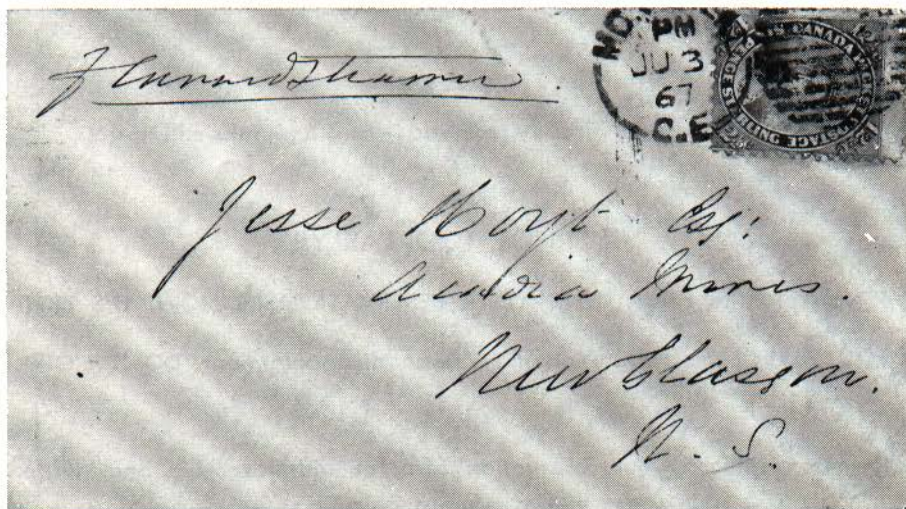 Cunard Steamer
PM
JU 3
67
C.E
CANADA POSTAGE
Jesse Hoyt Esq:
Acadia Mines.
New Glasgow.
N. S.